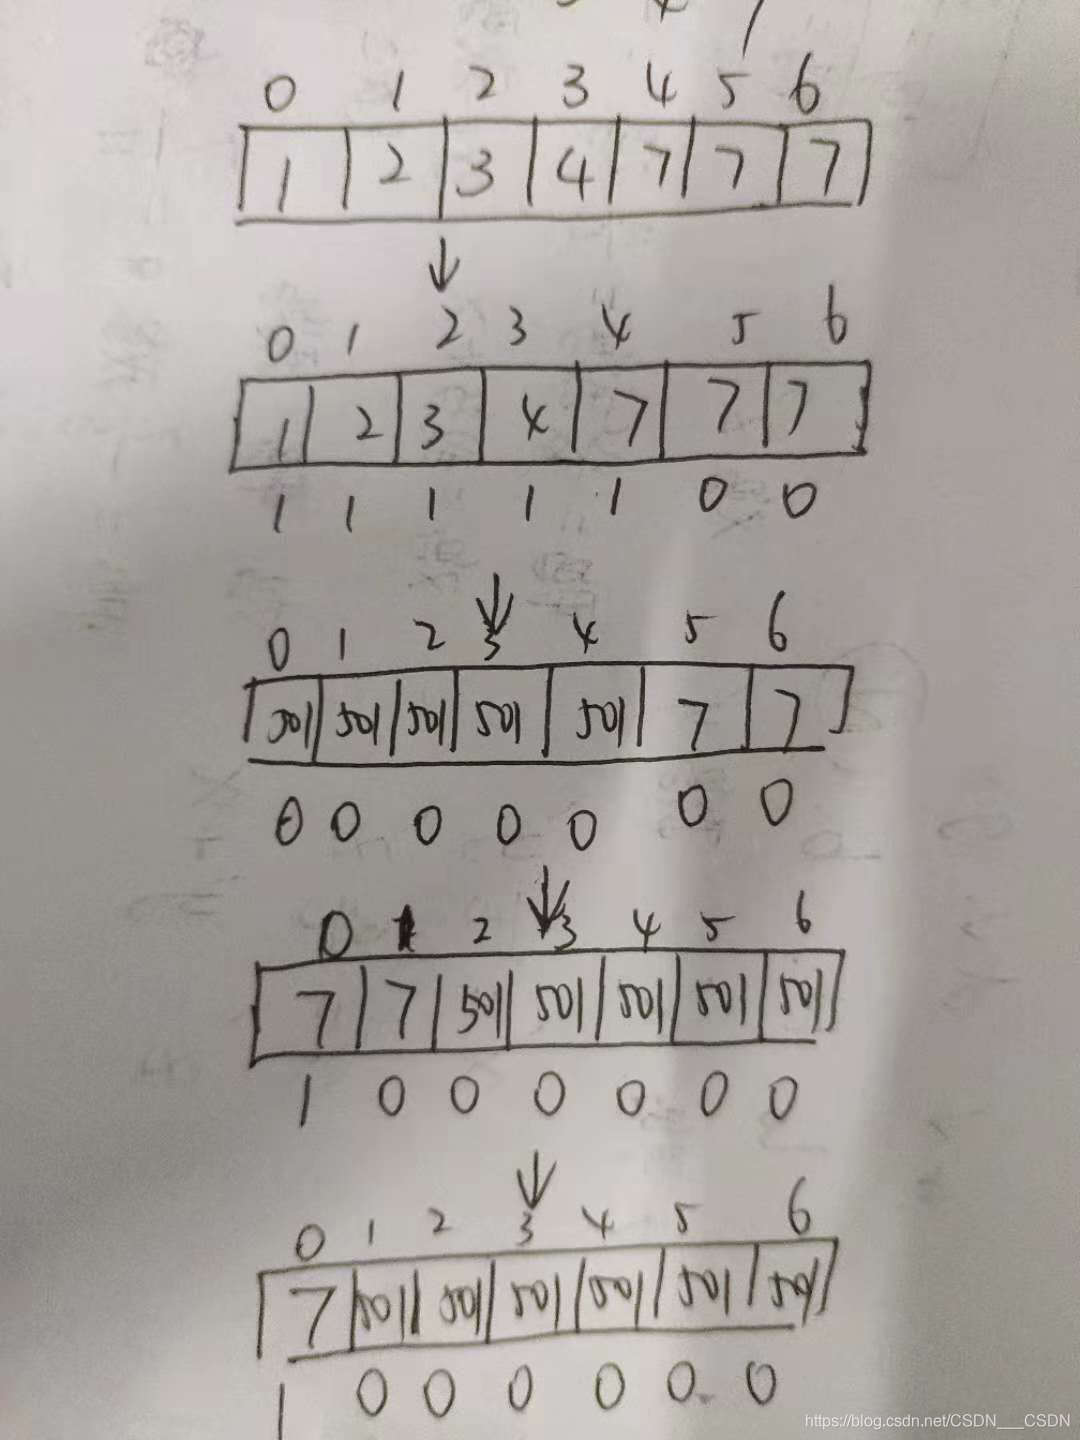 0 1 2 3 4 5 6
1 2 3 4 7 7 7
0 1 2 3 4 5 6
1 2 3 4 7 7 7
1 1 1 1 1 0 0
0 1 2 3 4 5 6
501 501 501 501 501 7 7
0 0 0 0 0 0 0
0 1 2 3 4 5 6
7 7 501 501 501 501 501
1 0 0 0 0 0 0
0 1 2 3 4 5 6
7 501 501 501 501 501 501
1 0 0 0 0 0 0
https://blog.csdn.net/CSDN___CSDN